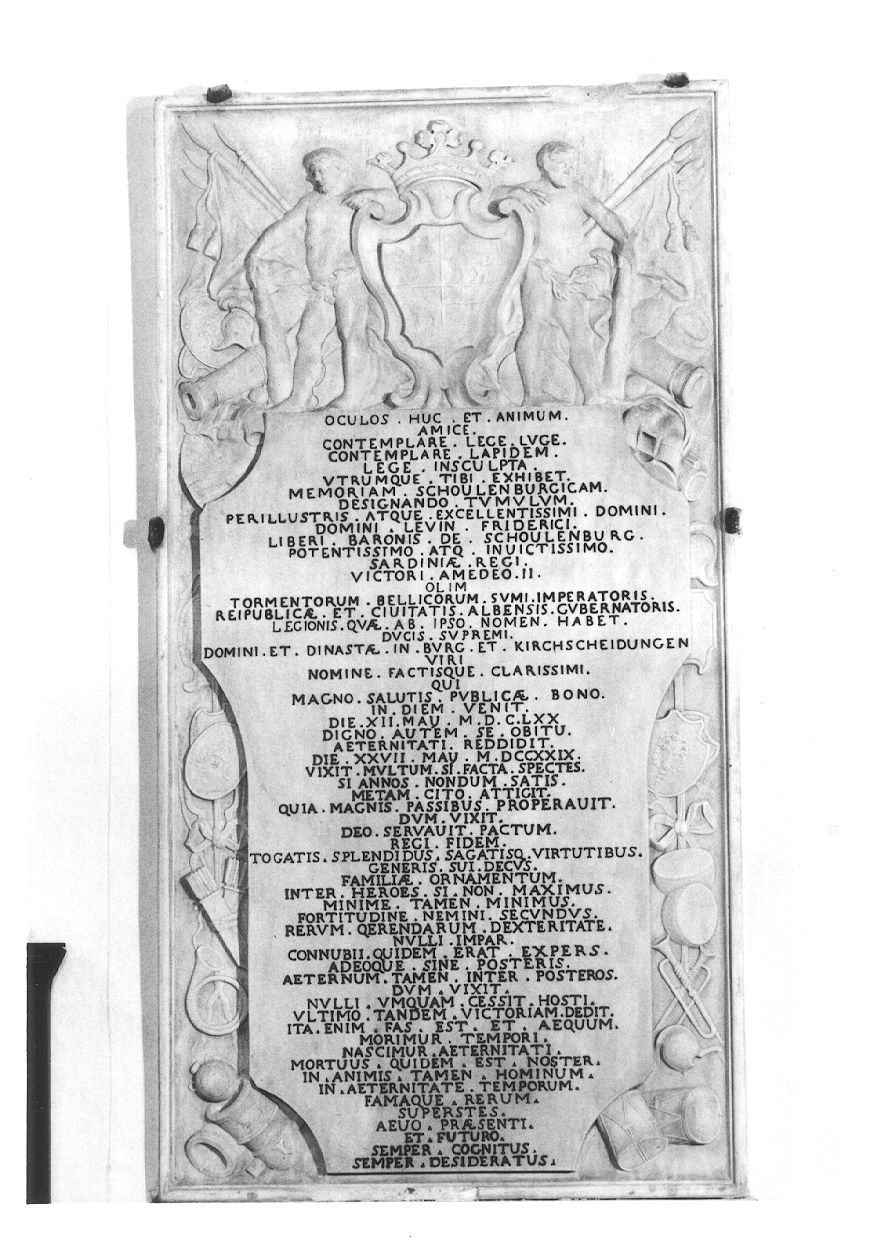 OCULOS . HUC . ET . ANIMUM.
AMICE.
CONTEMPLARE . LEGE . LVGE.
CONTEMPLARE . LAPIDEM .
LEGE . INSCULPTA .
VTRUMQUE . TIBI . EXHIBET.
MEMORIAM . SCHOULENBURGICAM.
DESIGNANDO . TVMVLVM.
PERILLUSTRIS . ATQUE . EXCELLENTISSIMI . DOMINI.
DOMINI . LEVIN . FRIDERICI.
LIBERI . BARONIS . DE . SCHOULENBURG.
POTENTISSIMO . ATQ . INUICTISSIMO.
SARDINIÆ . REGI.
VICTORI . AMEDEO . II.
OLIM
TORMENTORUM . BELLICORUM . SVMI . IMPERATORIS.
REIPUBLICÆ . ET . CIUITATIS . ALBENSIS . GVBERNATORIS.
LEGIONIS . QVÆ . AB . IPSO . NOMEN . HABET.
DVCIS . SVPREMI.
DOMINI . ET . DINASTÆ . IN . BVRG . ET . KIRCHSCHEIDUNGEN
VIRI
NOMINE . FACTISQUE . CLARISSIMI.
QUI
MAGNO . SALUTIS . PVBLICÆ . BONO.
IN . DIEM . VENIT.
DIE . XII . MAU . M . D . C . LXX
DIGNO . AUTEM . SE . OBITU.
AETERNITATI . REDDIDIT.
DIE . XXVII . MAU . M . DCCXXIX.
VIXIT . MVLTUM . SI . FACTA . SPECTES.
SI ANNOS . NONDUM . SATIS.
METAM . CITO . ATTIGIT.
QUIA . MAGNIS . PASSIBUS . PROPERAUIT.
DVM . VIXIT.
DEO . SERVAUIT . PACTUM.
REGI . FIDEM.
TOGATIS . SPLENDIDUS . SAGATISQ . VIRTUTIBUS.
GENERIS . SUI . DECVS.
FAMILIÆ . ORNAMENTUM.
INTER . HEROES . SI . NON . MAXIMUS.
MINIME . TAMEN . MINIMUS.
FORTITUDINE . NEMINI . SECVNDVS.
RERVM . QERENDARUM . DEXTERITATE.
NVLLI . IMPAR.
CONNUBII . QUIDEM . ERAT . EXPERS.
ADEOQUE . SINE . POSTERIS.
AETERNUM . TAMEN . INTER . POSTEROS.
DVM . VIXIT.
NVLLI . VMQUAM . CESSIT . HOSTI.
VLTIMO . TANDEM . VICTORIAM . DEDIT.
ITA . ENIM . FAS . EST . ET . AEQUUM.
MORIMUR . TEMPORI.
NASCIMUR . AETERNITATI.
MORTUUS . QUIDEM . EST . NOSTER.
IN . ANIMIS . TAMEN . HOMINUM.
IN . AETERNITATE . TEMPORUM.
FAMAQUE . RERUM.
SUPERSTES.
AEUO . PRÆSENTI.
ET . FUTURO.
SEMPER . COGNITUS.
SEMPER . DESIDERATUS.